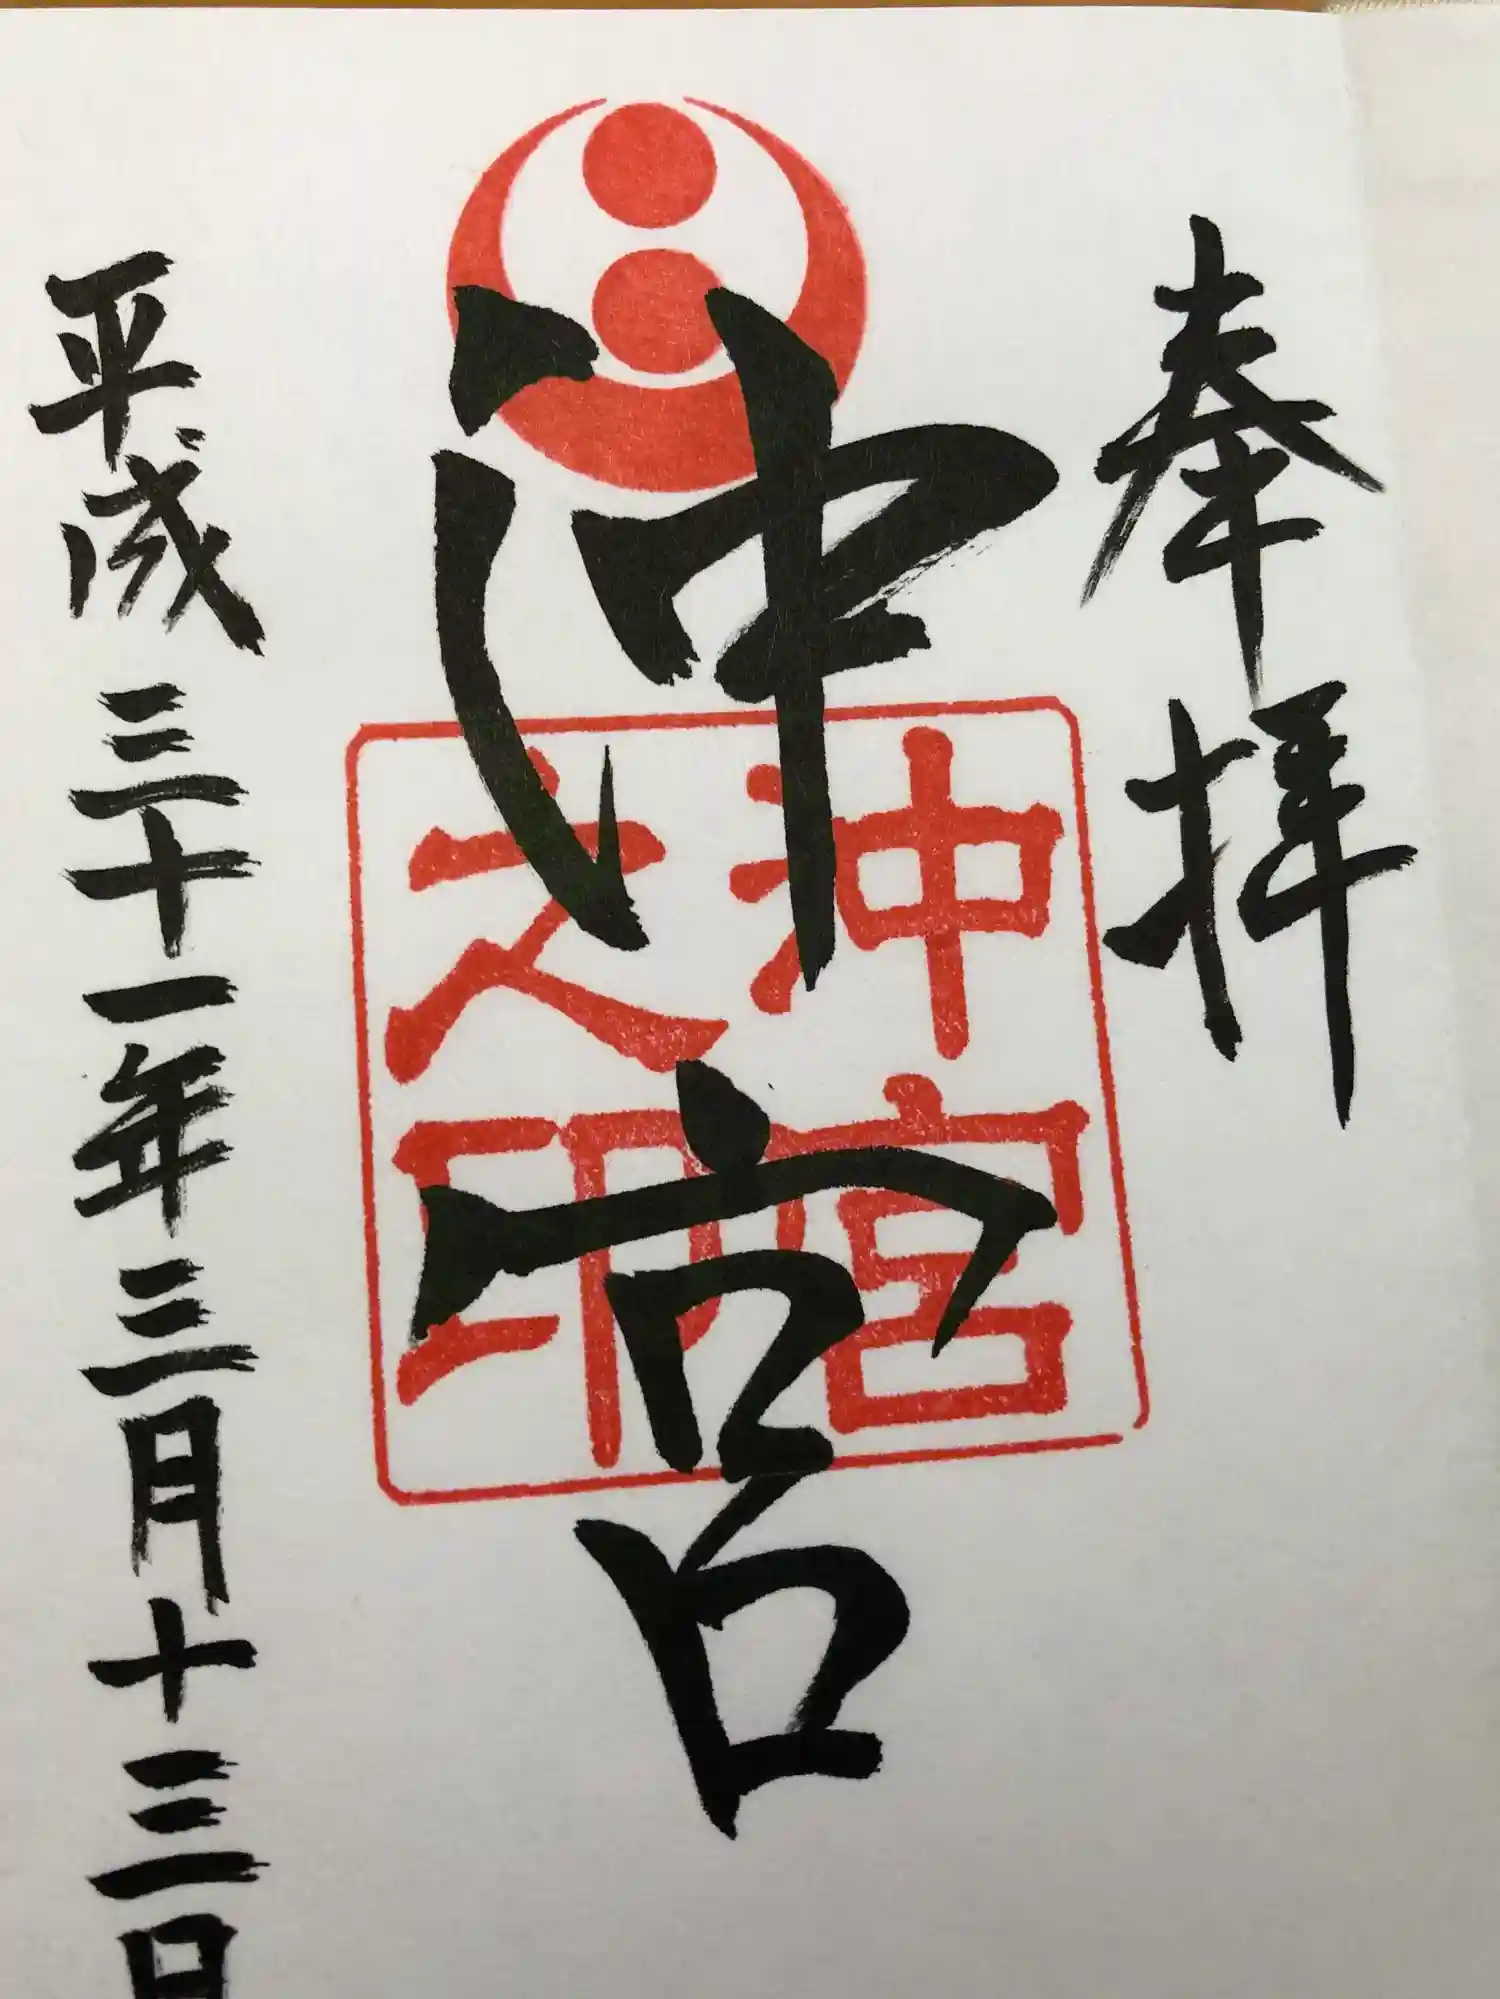 奉拝
沖宮
沖宮
之印
平成三十一年三月十三日